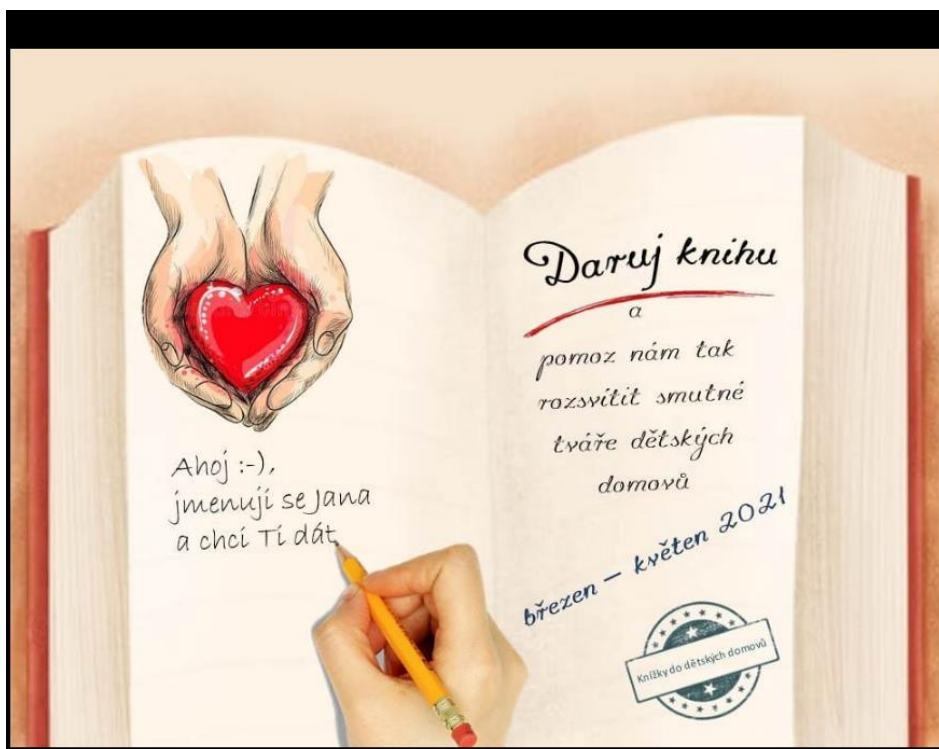 Ahoj :-),
jmenuji se Jana
a chci Ti dát
Daruj knihu
a
pomoz nám tak
rozsvítit smutné
tváře dětských
domovů
březen – květen 2021
Knížky do dětských domovů